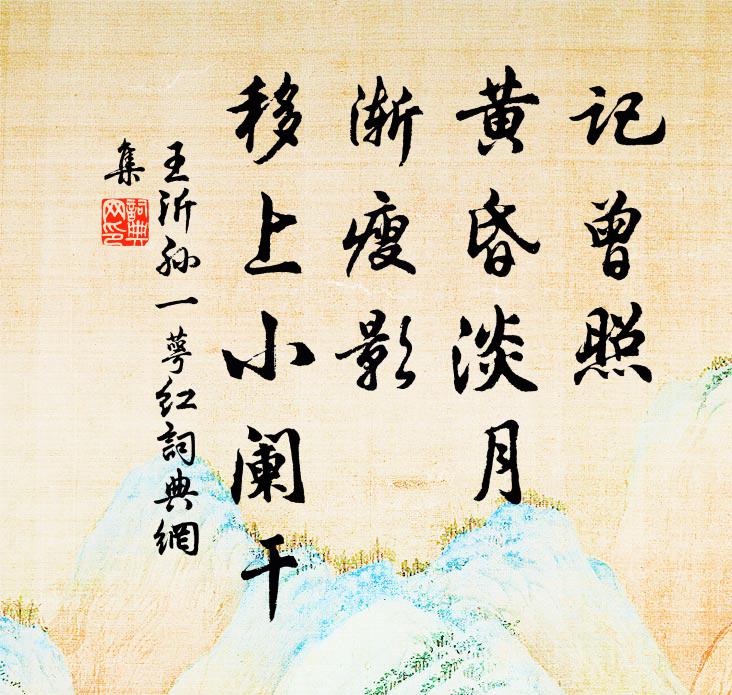 记曾照
黄昏淡月
渐瘦影
移上小阑干
王沂孙一萼红詞典網
集
詞典網印